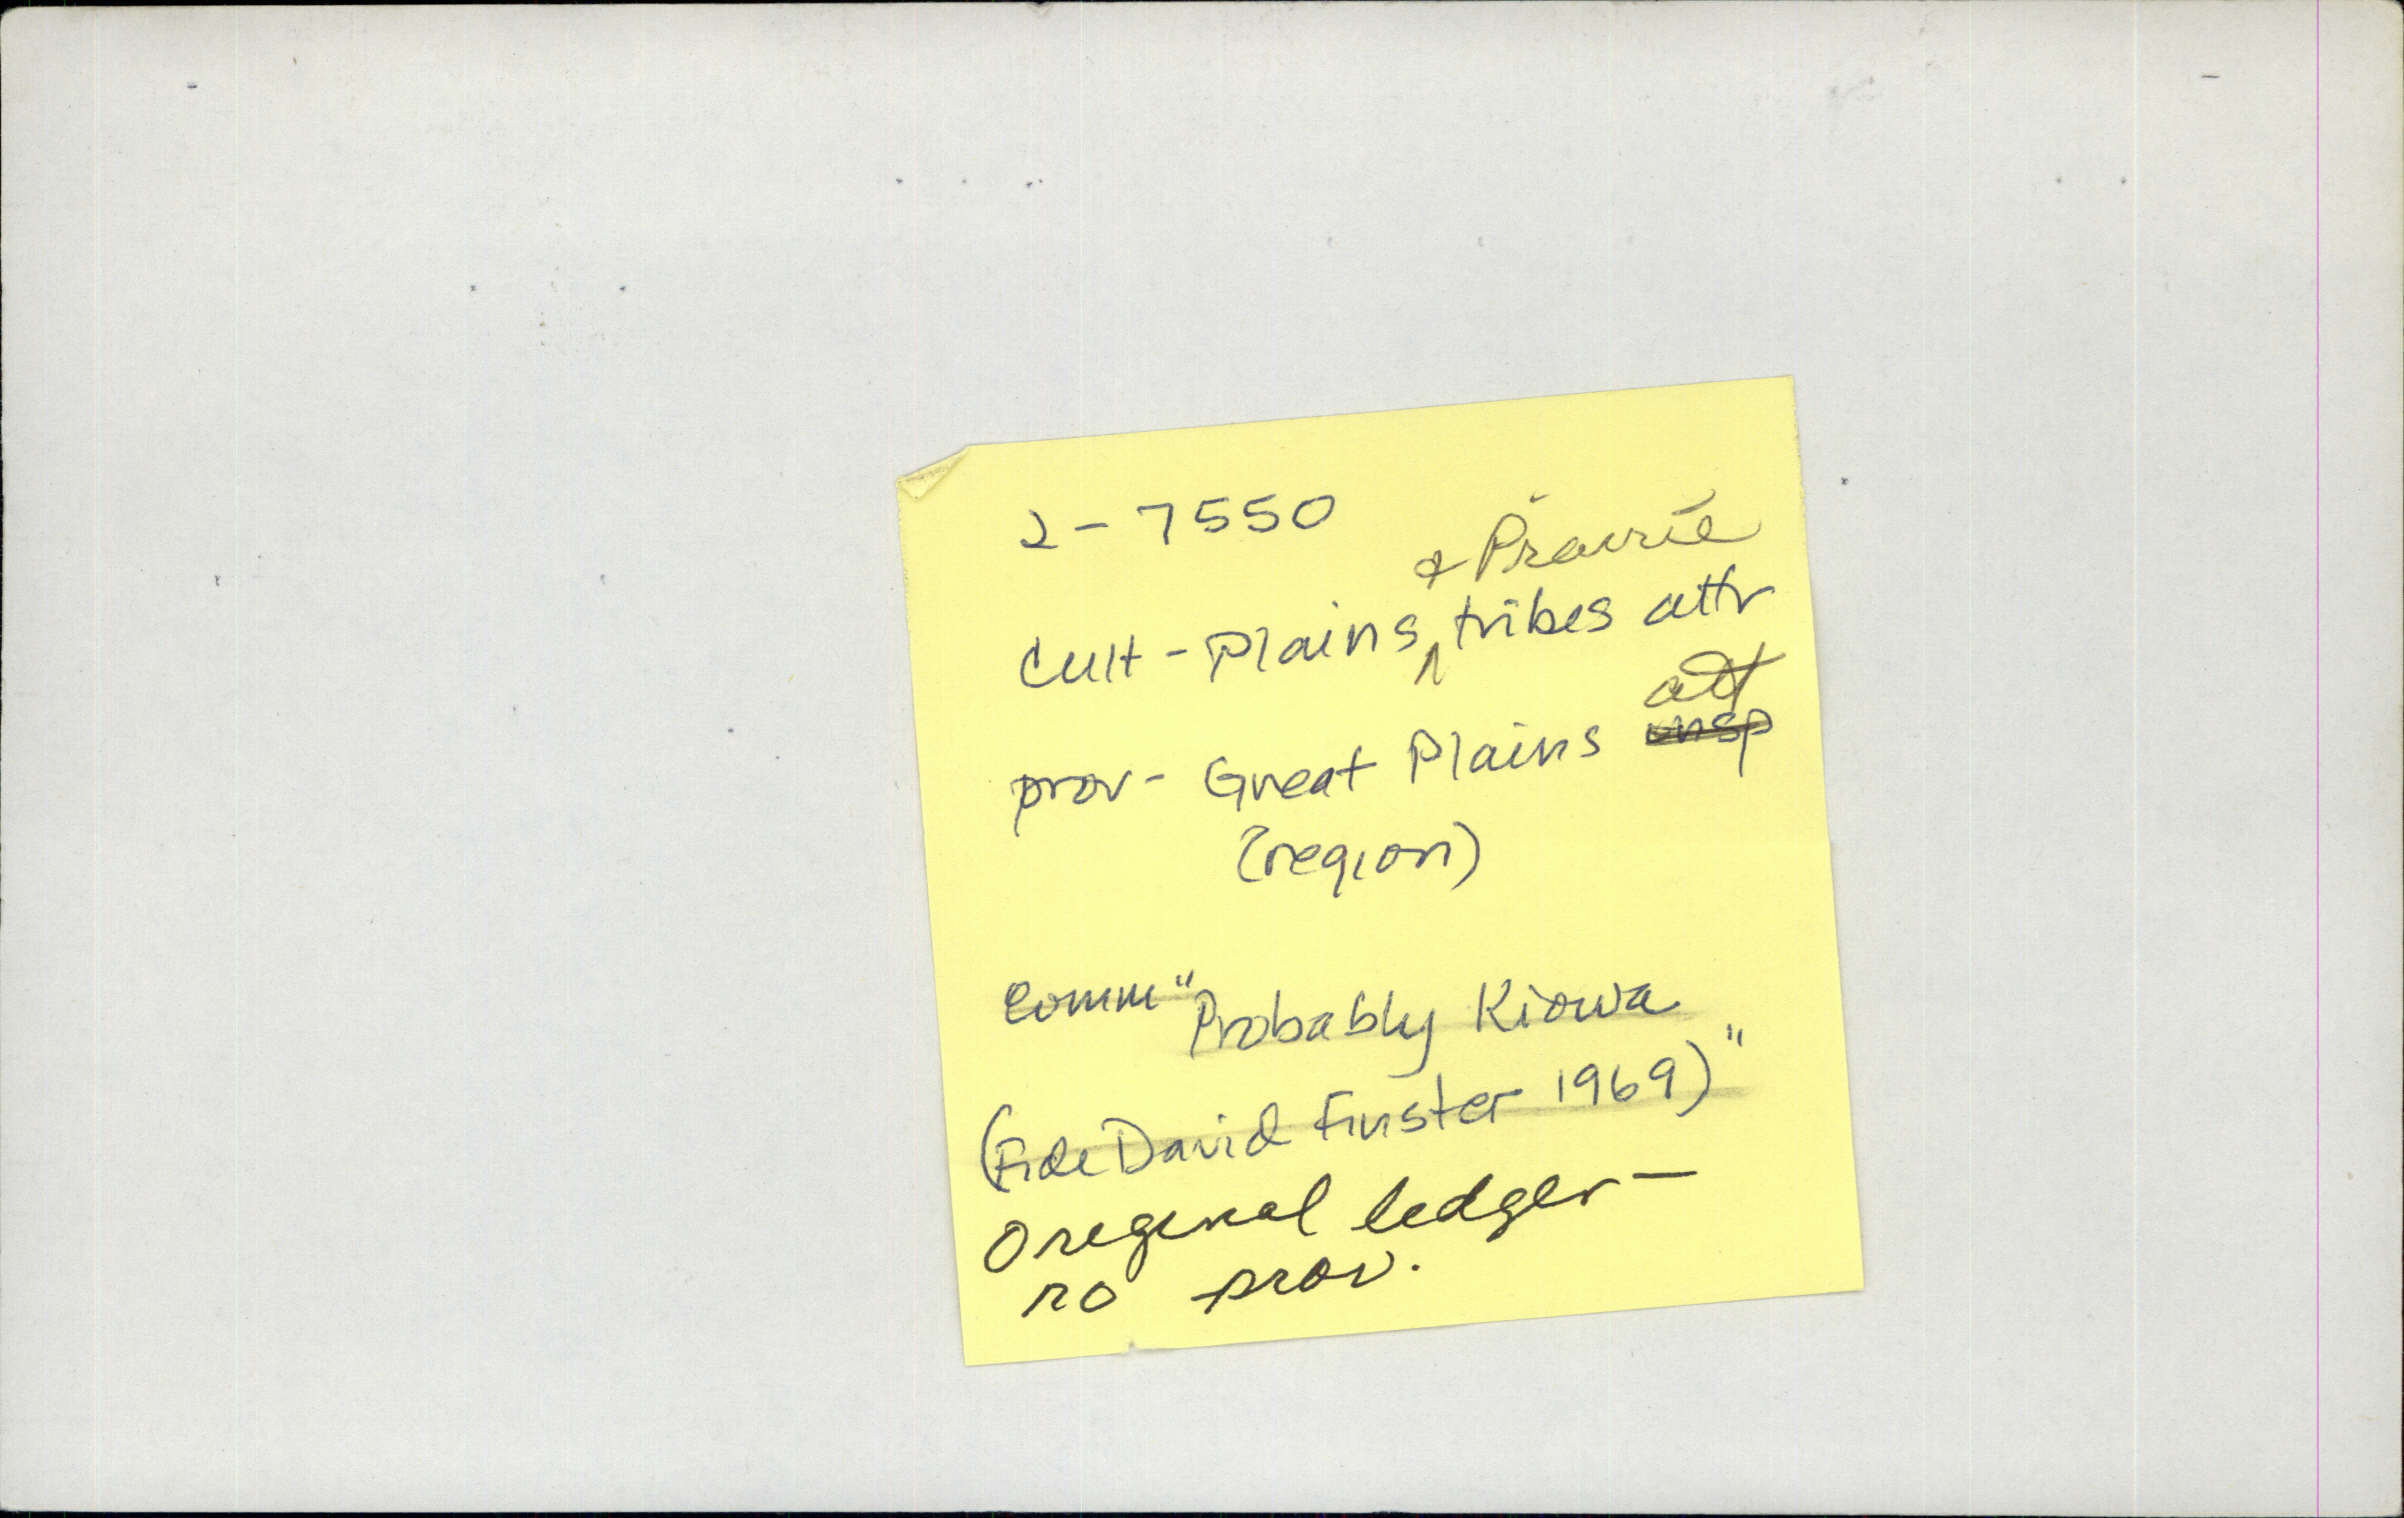 2-7550
& Prairie
Cult - Plains ^ tribes attr
att
prov- Great Plains unsp
(region)
Comm "Probably Kiowa
(Fide David Finster 1969)"
Original ledger-
no prov.